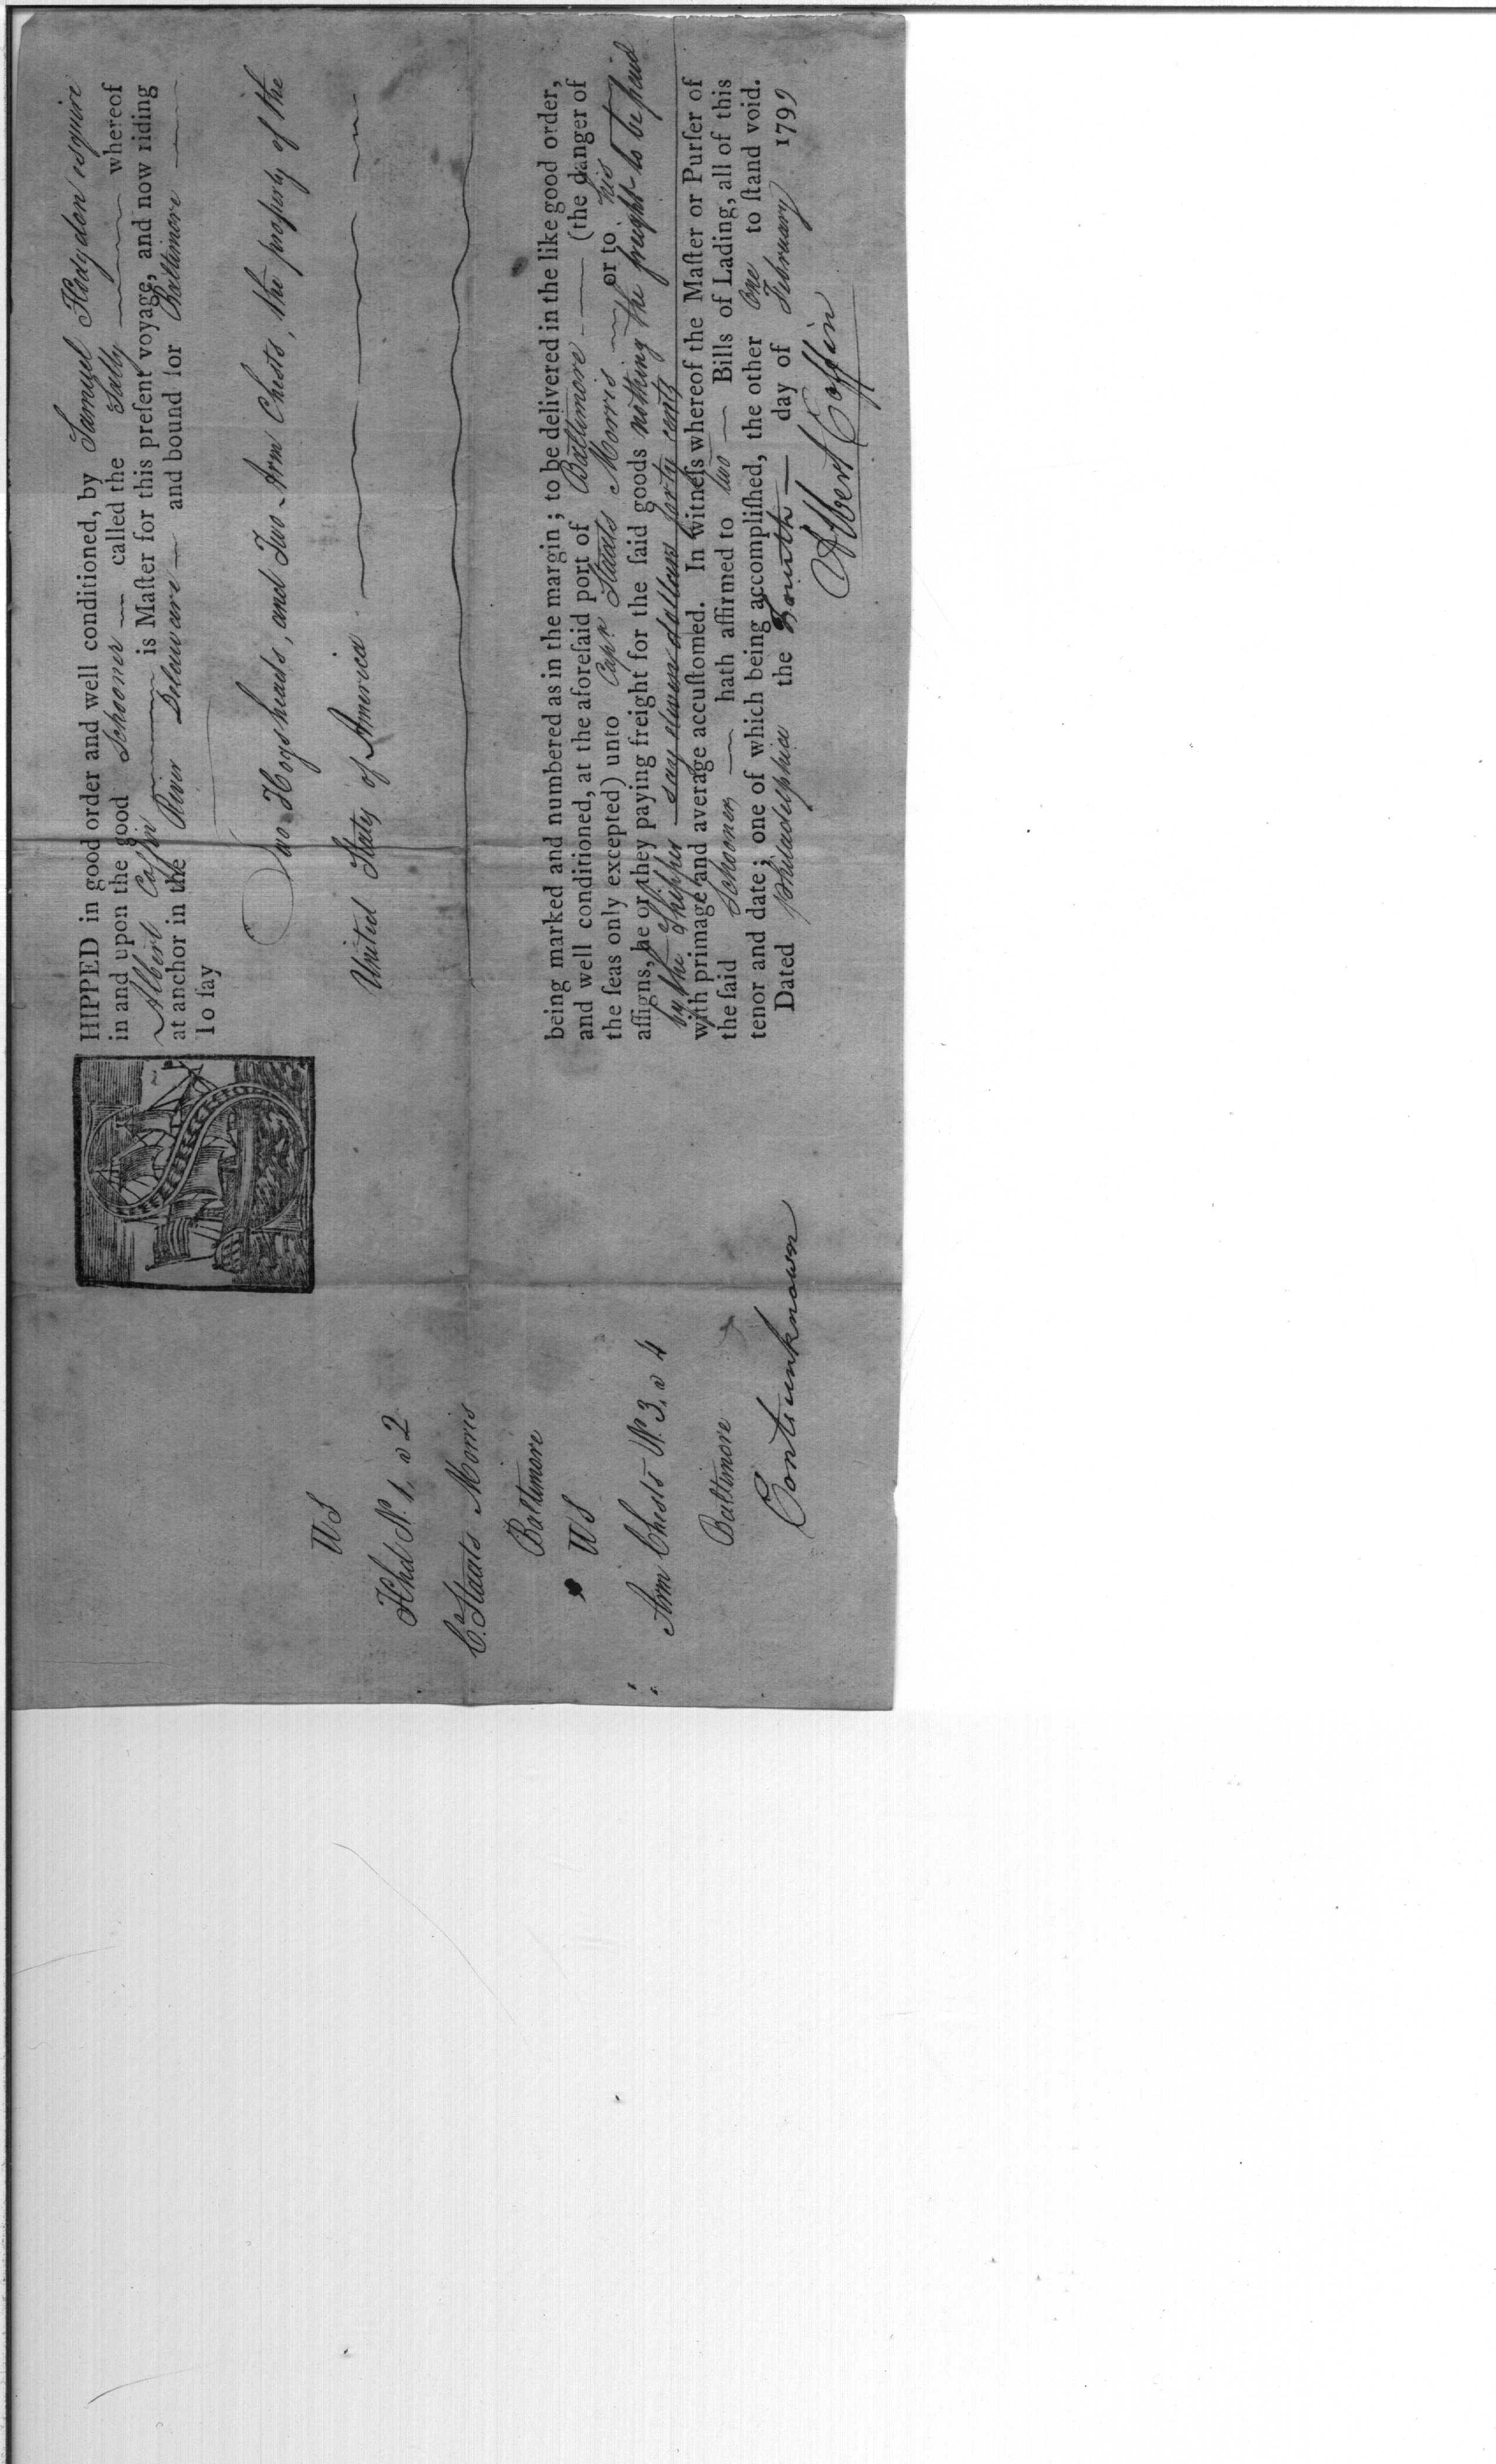 SHIPPED in good order and well conditioned, by Samuel Hodgdon esquire
in and upon the good Schooner called the Sally whereof
Albert Coffin is Maſter for this preſent voyage, and now riding
at anchor in the River Delaware and bound for Baltimore
To ſay
Two Hogsheads, and Two Arm Chests, the property of the
United States of America
being marked and numbered as in the margin; to be delivered in the like good order,
and well conditioned, at the aforeſaid port of Baltimore (the danger of
the ſeas only excepted) unto Capn. Staats Morris or to his
aſſigns, he or they paying freight for the ſaid goods nothing the freight to be paid
by the Shipper say eleven dollars forty cents
with primage and average accuſtomed. In witneſs whereof the Maſter or Purſer of
the ſaid Schooner hath affirmed to two Bills of Lading, all of this
tenor and date; one of which being accompliſhed, the other One to ſtand void.
Dated Philadelphia the fourth day of February 1799
Albert Coffin
US
Hhd No. 1, a 2
C. Staats Morris
Baltimore
US
Arm Chests No. 3, a 4
Baltimore
Conts. unknown